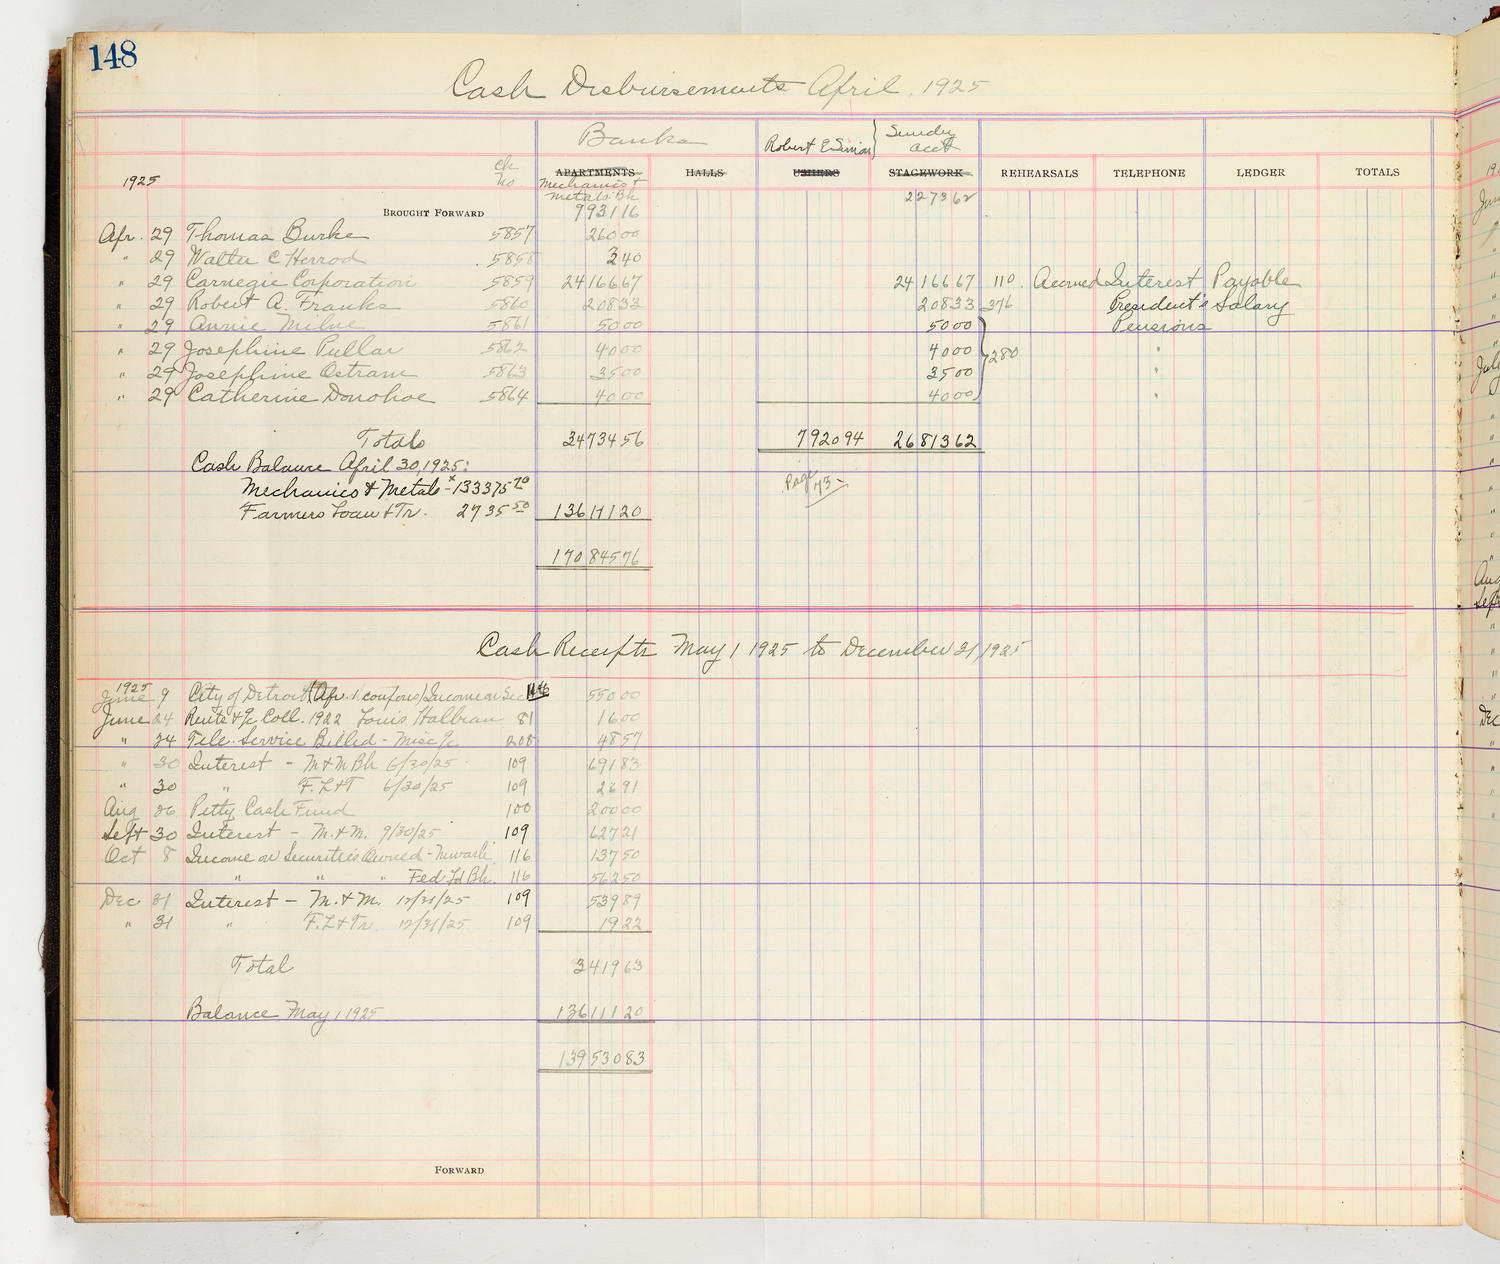 148
Cash Disbursements April 1925
Banks Robert E Simon } Sundry acct
ch no. APARTMENTS HALLS USHERS STAGEWORK REHEARSALS TELEPHONE LEDGER TOTALS
1925 Mechanics & Metals Bk 227362
BROUGHT FORWARD 993116
Apr. 29 Thomas Burke 5857 26000
" 29 Walter C Herrod 5858 240
" 29 Carnegie Corporation 5859 2416667 2416667 110 Accrued Interest Payable
" 29 Robert A. Franks 5860 20833 20833 376 President's Salary
" 29 Annie Milne 5861 5000 5000 Pensions
" 29 Josephine Pullar 5862 4000 4000 280 "
" 29 Josephine Ostram 5863 3500 3500 "
" 29 Catherine Donohoe 5864 4000 4000 "
Totals 3473456 792094 2681362
Cash Balance April 30, 1925:
Mechanics & Metals - 133375 70 Page 73
Farmers Loan & Tr. 2735 50 13611120
17084576
Cash Receipts May 1 1925 to December 31, 1925
1925
June 9 City of Detroit (Apr. 1 coupons) Income on Sec 116 55000
June 24 Rents a/c Coll. 1922 Louis Hallbran 81 1600
" 24 Tele. Service Billed - Misc a/c 208 4857
" 30 Interest - M & M Bk 6/30/25 109 69183
" 30 " F. L & T 6/30/25 109 2691
Aug 26 Petty Cash Fund 100 20000
Sept 30 Interest - M. & M. 9/30/25 109 62721
Oct 8 Income on Securities Owned - Newark 116 13750
" " " Fed. Ld Bk. 116 56250
Dec 31 Interest - M. & M. 12/31/25 109 53989
" 31 " F. L & Tr. 12/31/25 109 1922
Total 341963
Balance May 1 1925 13611120
13953083
FORWARD